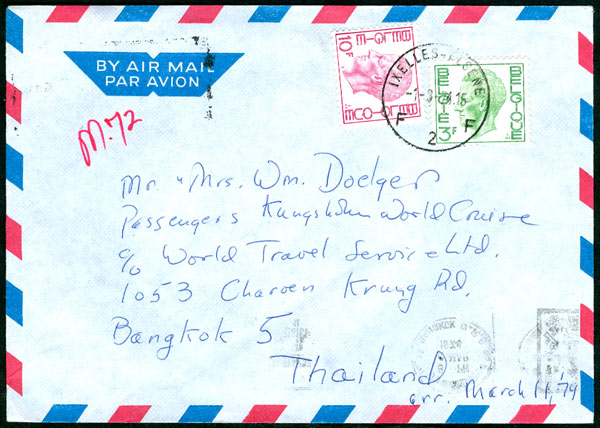 BY AIR MAIL
PAR AVION
BELGIE
10F
BELGIQUE
BELGIQUE
BELGIE 3F
IXELLES-ELSENE
F 2 F
M-72
Mr. " Mrs. Wm. Doelger
Passengers Kungsholm World Cruise
c/o World Travel Service Ltd.
1053 Charoen Krung Rd.
Bangkok 5
Thailand
arr. March 11, 79
BANGKOK